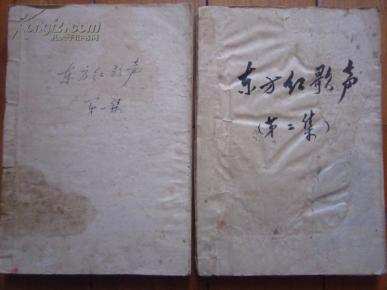 东方红歌声
第一集
东方红歌声
(第二集)